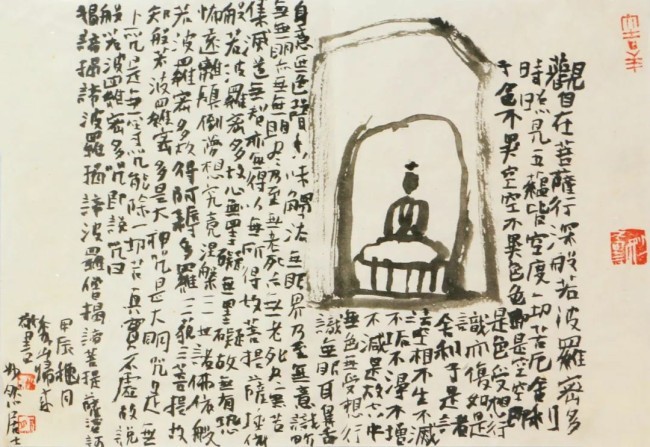 觀自在菩薩行深般若波羅密多
時照見五蘊皆空度一切苦厄舍利
子色不異空空不異色色即是空空即
是色受想行
識亦復如是
舍利子是諸
法空相不生不滅
不垢不淨不增
不減是故空中
無色無受想行
識無眼耳鼻舌
身意無色聲香味觸法無眼界乃至無意識界
無無明亦無無明盡乃至無老死亦無老死盡無苦
集滅道無智亦無得以無所得故菩提薩埵依
般若波羅密多故心無罣礙無罣礙故無有恐
怖遠離顛倒夢想究竟涅槃三世諸佛依般
若波羅密多故得阿耨多羅三藐三菩提故
知般若波羅密多是大神咒是大明咒是無
上咒是無等等咒能除一切苦真實不虛故說
般若波羅密多咒即說咒曰
揭諦揭諦波羅揭諦波羅僧揭諦菩提薩婆訶
甲辰穐月
居士